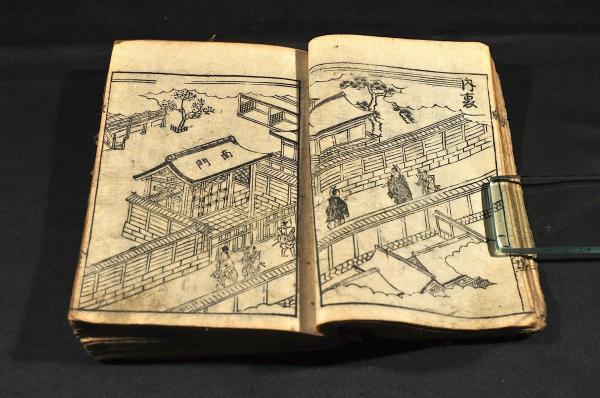 内裏
南門